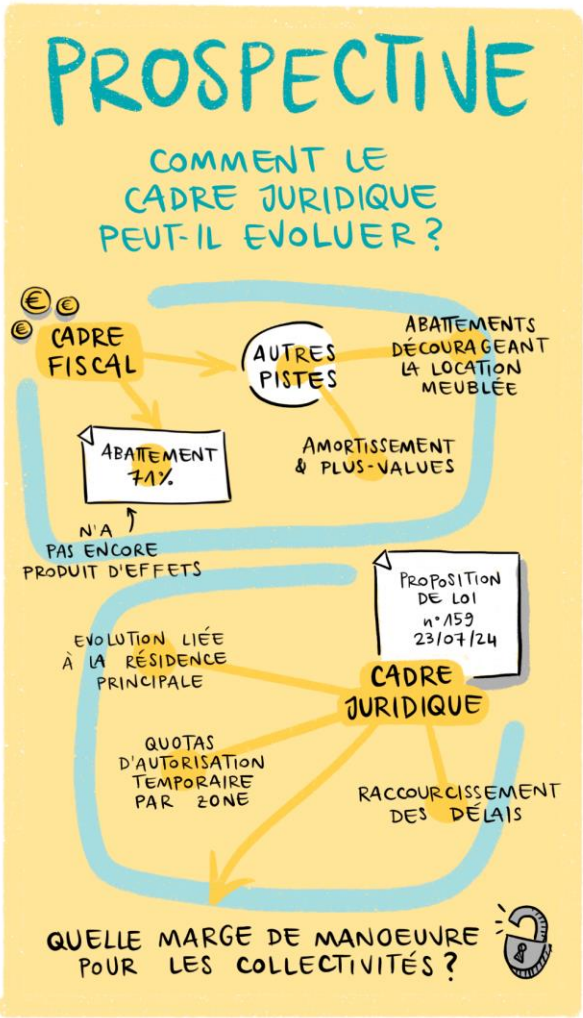 PROSPECTIVE
COMMENT LE
CADRE JURIDIQUE
PEUT-IL EVOLUER ?
€ €
€
CADRE
FISCAL
AUTRES
PISTES
ABATTEMENTS
DÉCOURAGEANT
LA LOCATION
MEUBLÉE
ABATTEMENT
71%
AMORTISSEMENT
& PLUS-VALUES
N'A
PAS ENCORE
PRODUIT D'EFFETS
PROPOSITION
DE LOI
n°159
23/07/24
CADRE
JURIDIQUE
EVOLUTION LIÉE
À LA RÉSIDENCE
PRINCIPALE
QUOTAS
D'AUTORISATION
TEMPORAIRE
PAR ZONE
RACCOURCISSEMENT
DES DÉLAIS
QUELLE MARGE DE MANOEUVRE
POUR LES COLLECTIVITÉS ?